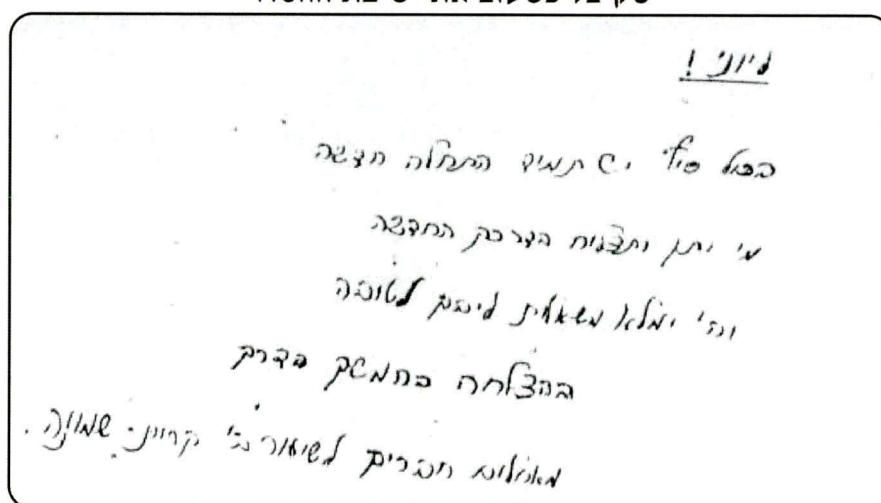 ליוני !
בכול סוף יש תמיד התחלה חדשה
מי יתן ותצליח בדרכך החדשה
וה' ימלא משאלות ליבך לטובה
בהצלחה בהמשך בדרכך
מאחלים חברים לשיעור ב' קריית שמונה.